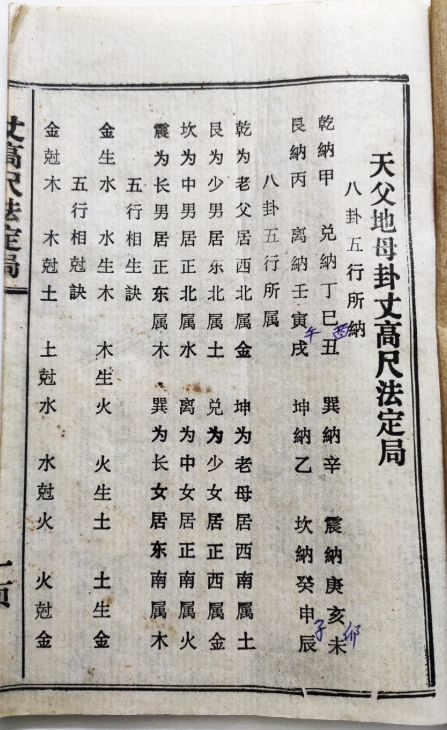 天父地母卦丈高尺法定局
八卦五行所納
乾納甲 兑納丁巳酉丑 巽納辛 震納庚亥卯未
艮納丙 离納壬寅午戌 坤納乙 坎納癸申子辰
八卦五行所属
乾为老父居西北属金 坤为老母居西南属土
艮为少男居东北属土 兑为少女居正西属金
坎为中男居正北属水 离为中女居正南属火
震为长男居正东属木 巽为长女居东南属木
五行相生訣
金生水 水生木 木生火 火生土 土生金
五行相尅訣
金尅木 木尅土 上尅水 水尅火 火尅金
丈高尺法定局